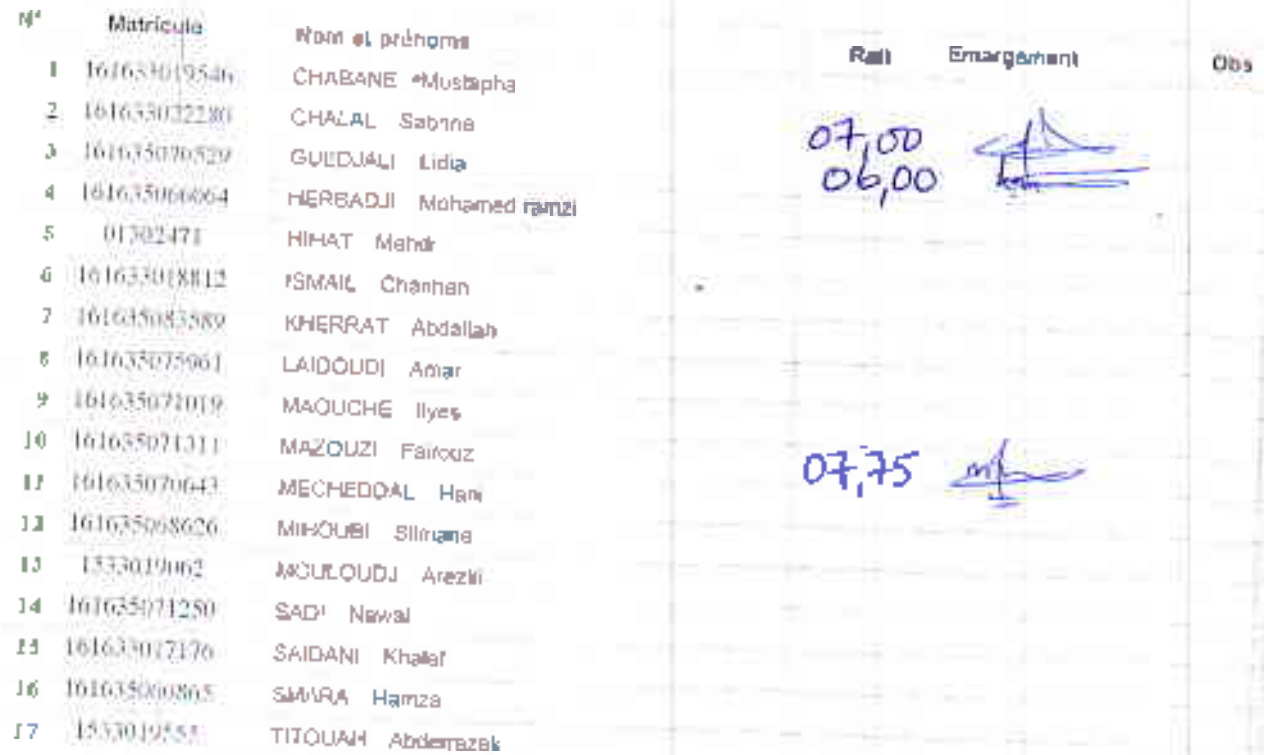 N° Matricule Nom et prénoms Ratt Emargement Obs
1 161633019546 CHABANE Mustapha
2 161633022280 CHALAL Sabrina 07,00
3 161635070529 GUEDJALI Lidia 06,00
4 161635066064 HERBADJI Mohamed ramzi
5 01302471 HIHAT Mehdi
6 161633018812 ISMAIL
7 161635083589 KHERRAT Abdallah
8 161635075961 LAIDOUDI Amar
9 161635071019 MAOUCHE Ilyes
10 161635071311 MAZOUZI Fairouz 07,75
11 161635070643 MECHEDDAL Hani
12 161635068626 MIHOUBI Slimane
13 1533019062 MOULOUDJ Arezki
14 161635071250 SADI Nawal
15 161633017176 SAIDANI Khalef
16 161635060865 SMARA Hamza
17 1533019555 TITOUAH Abderrazak